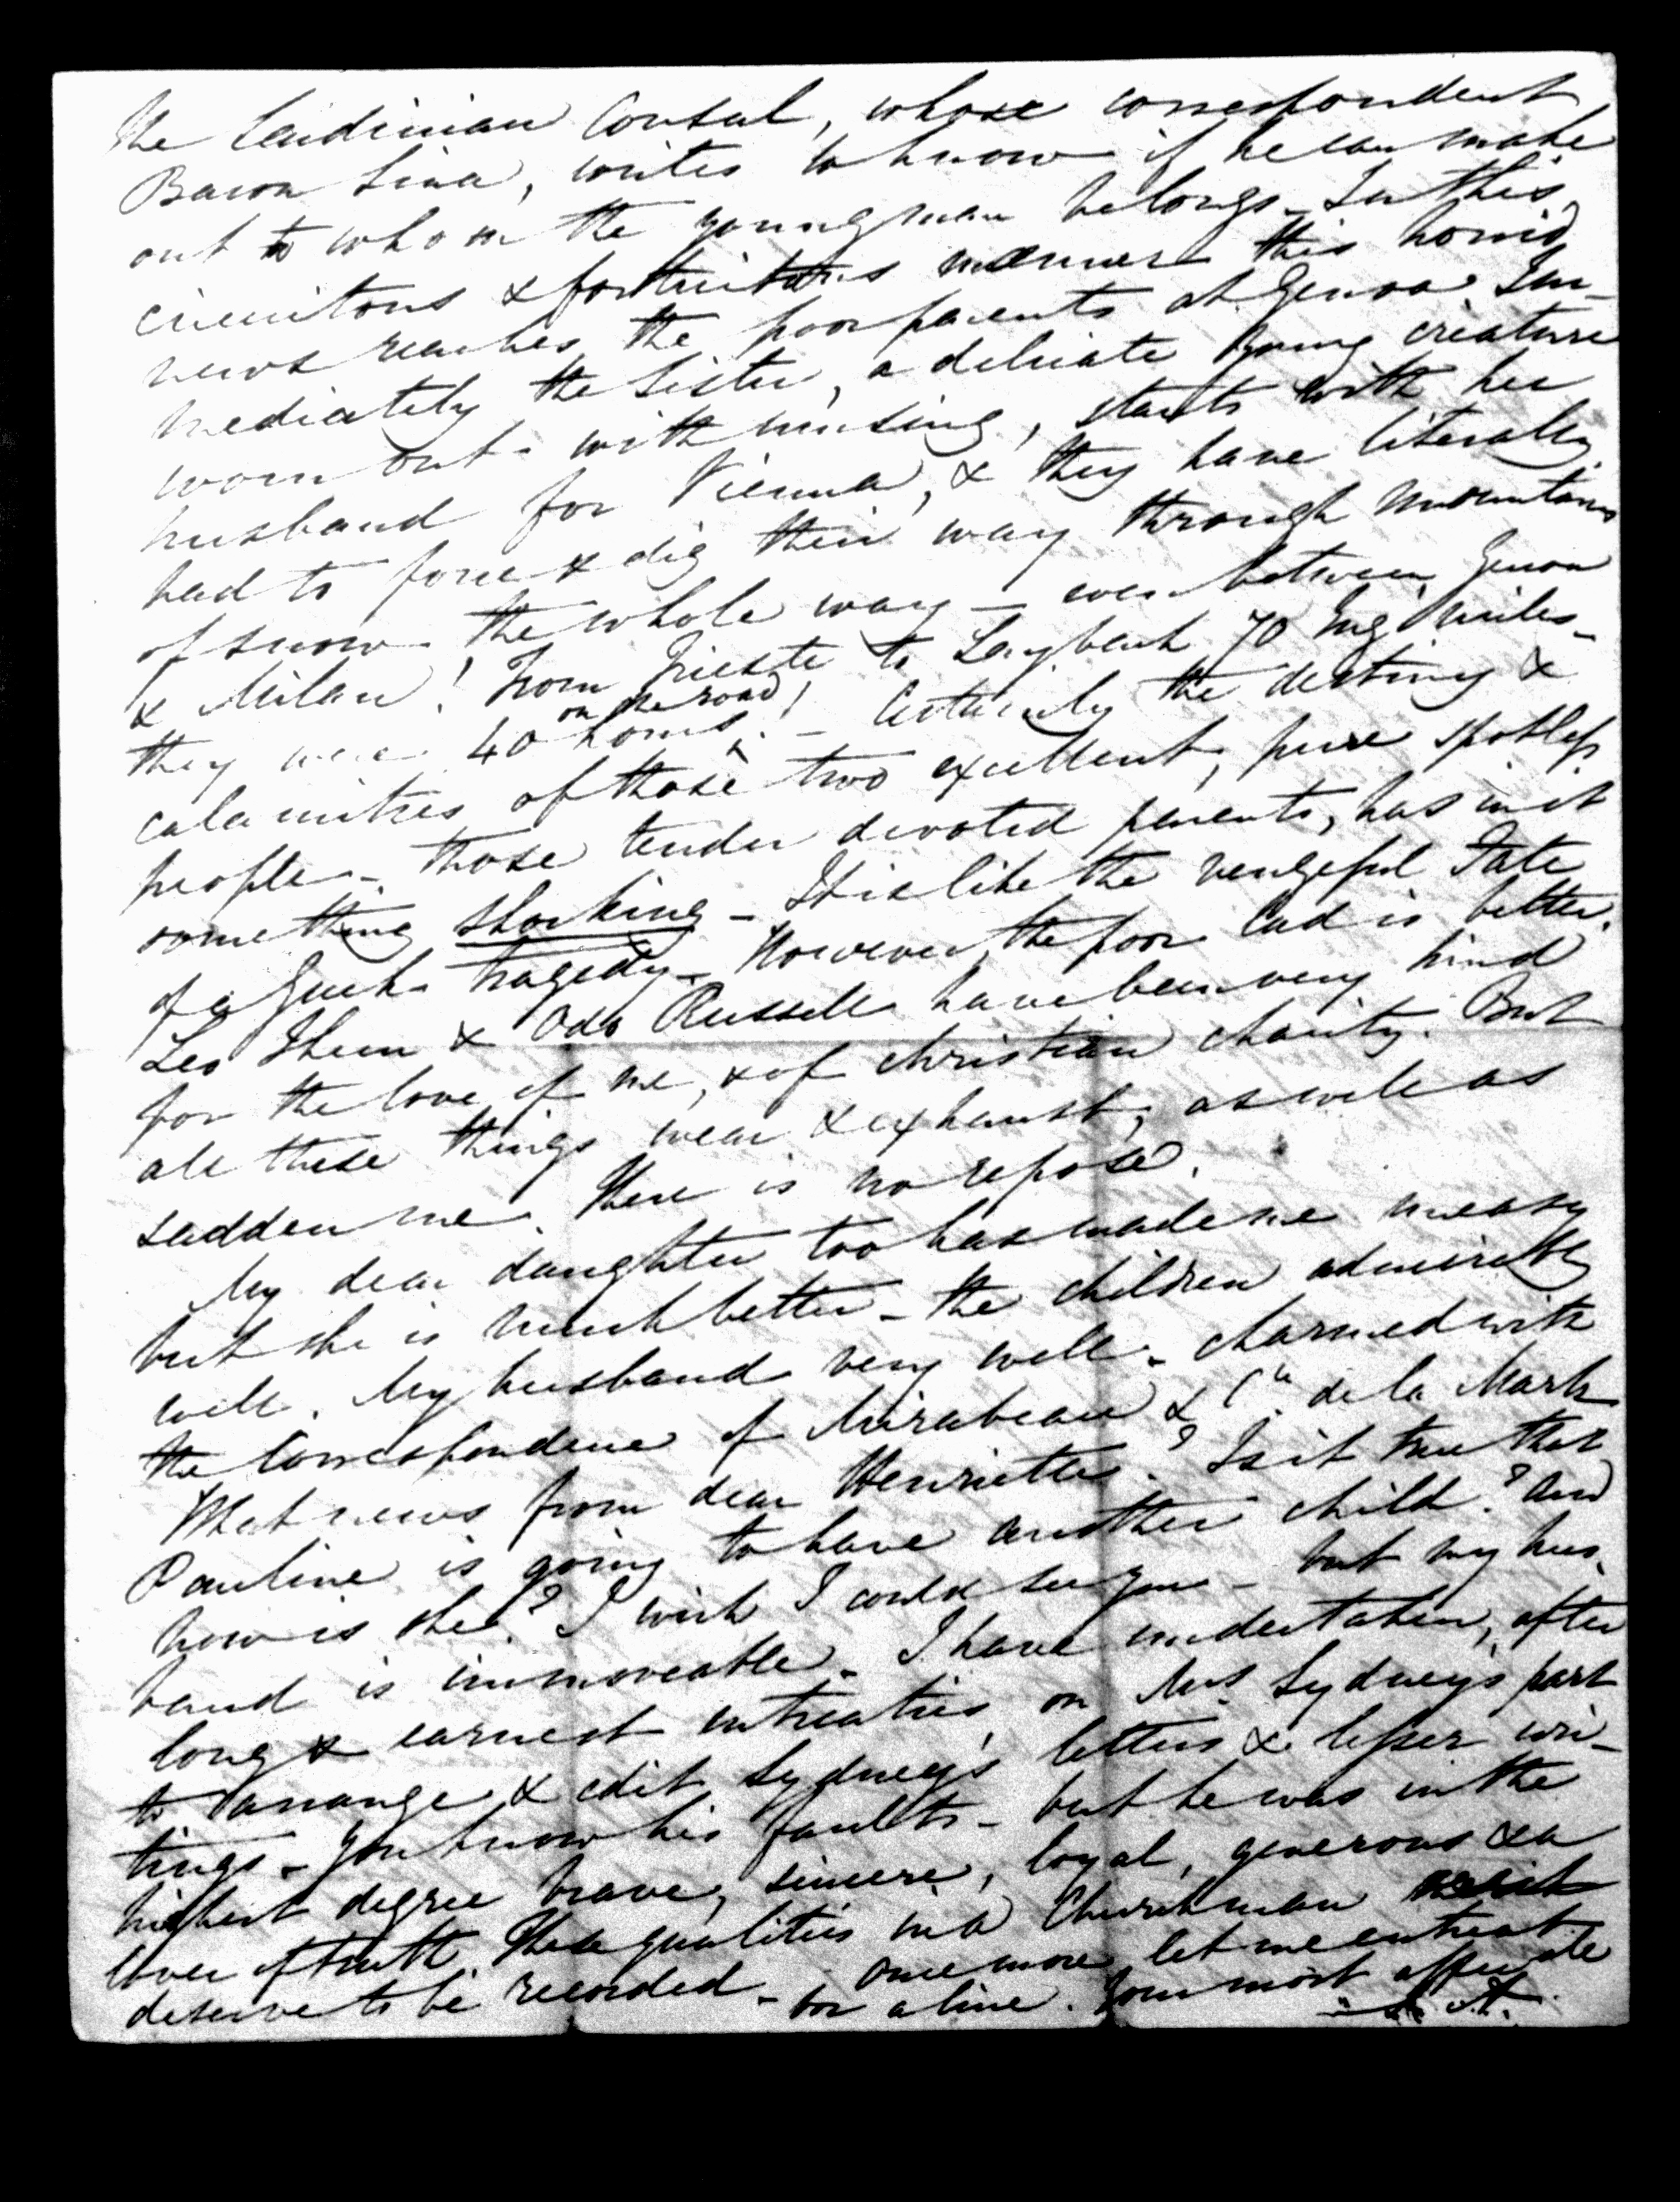 the Sardinian Consul, whose correspondent
Baron Sina, writes to know if he can make
out to whom the young man belongs. In this
circuitous & fortuitous manner this horrid
news reaches the poor parents at Genoa. Im-
mediately the sister, a delicate young creature
worn out with nursing, starts with her
husband for Vienna, & they have literally
had to force & dig their way through mountains
of snow the whole way – even between Genoa
& Milan! From Trieste to Laybach 70 Eng miles –
they were 40 hours on the road! – Certainly the destiny &
calamities of those two excellent, pure spotless
people – those tender devoted parents, has in it
something shocking – It is like the vengeful Fate
of a Greek tragedy – However the poor lad is better.
Leo Thun & Odo Russell have been very kind
for the love of me, & of christian charity. But
all these things wear & exhaust, as well as
sadden me. There is no repose.
My dear daughter too has made me uneasy
but she is much better – the children admirably
well. My husband very well – charmed with
the Correspondence of Mirabeau & Cte de la Mark
What news from dear Henriette? Is it true that
Pauline is going to have another child? And
how is she? I wish I could see you – but my hus-
band is immoveable – I have undertaken, after
long & earnest intreaties on Mrs Sydney's part
to arrange & edit Sydney's letters & lesser wri-
tings – You know his faults – but he was in the
highest degree brave, sincere, loyal, generous & a
lover of truth. These qualities in a Churchman
deserve to be recorded – Once more let me entreat
for a line. Your most affecate
S. A.